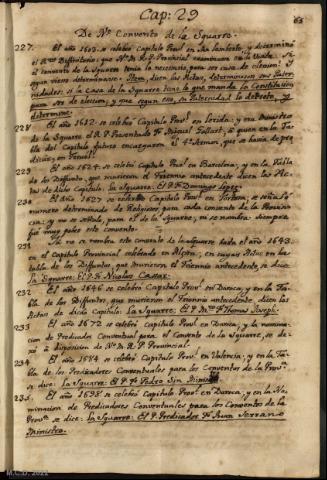 Cap: 29
63
De N.º Convento de la Squarre.
227. El año 1603. se celebró Capitulo Prov.l en Sn. Lamberto, y determinó
el R.mo Difinitorio: que N. M. R. P. Provincial examinara en la Visita, si
el convento de la Squarre tenia lo necesario para ser casa de eleccion; y
segun viere determinase. Item, dicen las Actas, determinaron sus Pater-
nidades: si la Casa de la Squarre tiene lo que manda la Constitucion
para ser de eleccion; y que segun esso, su Paternidad lo decrete, y
determine.
228. El año 1612. se celebró Capitulo Prov.l en Lerida; y era Ministro
de la Squarre el R. P. Presentado Fr. Miguel Fallart, á quien en la Ta-
bla del Capitulo futuro encargaron el 4.º Sermon, que se havia de pre-
dicar, en Teruel.
229. El año 1624. se celebró Capitulo Prov.l en Barcelona, y en la Tabla
de los Difuntos, que murieron el Trienio antecedente dicen las Ac-
tas de dicho Capitulo. La Squarre: El P. Fr. Domingo Lopez.
230. El año 1627. se celebró Capitulo Prov.l en Tortosa; se señaló
numero determinado de Religiosos para cada convento de la Provin-
cia; y no se señaló para el de la Squarre, ni se nombra: siempre
fué muy pobre este convento.
231. Ya no se nombra este convento de la Squarre hasta el año 1643.
en el Capitulo Provincial celebrado en Alcira; en cuyas Actas en la
tabla de los Difuntos que murieron el Trienio antecedente se dice.
La Squarre: El P. Fr. Nicolas Castar.
232. El año 1646. se celebró Capitulo Prov.l en Daroca, y en la Ta-
bla de los Difuntos, que murieron el Trienio antecedente, dicen las
Actas de dicho Capitulo: La Squarre: El P. M.ro Fr. Thomas Joseph.
233. El año 1672. se celebró Capitulo Prov.l en Daroca; y la nomina-
cion de Predicador Conventual para el Convento de la Squarre, se de-
xó á disposicion de N. M. R. P. Provincial.
234. El año 1684. se celebró Capitulo Prov.l en Valencia; y en la Ta-
bla de los Predicadores Conventuales para los Conventos de la Prov.a
se dice: La Squarre: El P. Fr. Pedro Sin Ministro.
235. El año 1698. se celebró Capitulo Prov.l en Daroca, y en la No-
minacion de Predicadores Conventuales para los Conventos de la
Prov.a se dice: La Squarre: El P. Predicador Fr. Juan Serrano
Ministro.
M.C.D. 2022